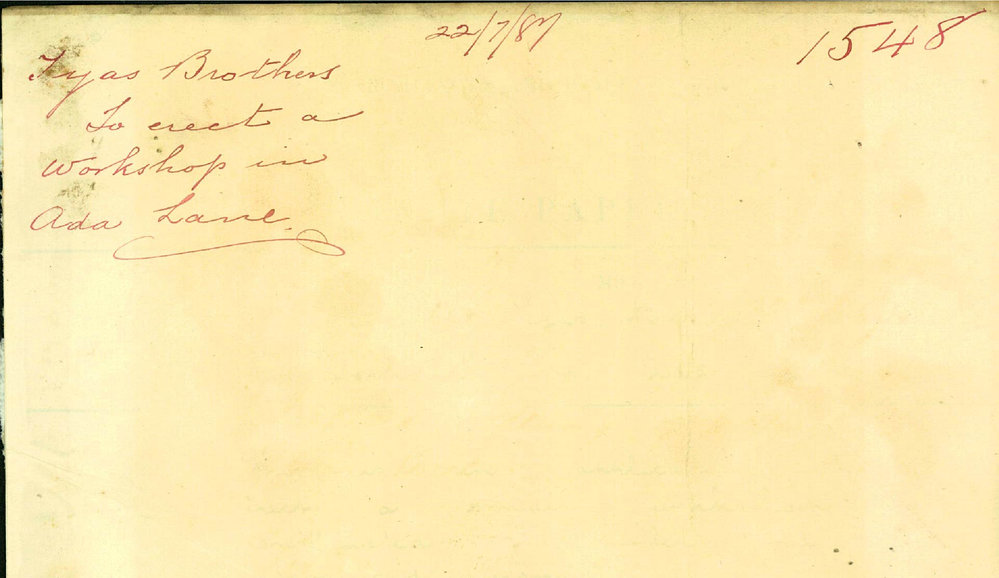 22/7/87
1548
Tyas Brothers
To erect a
Workshop in
Ada Lane.